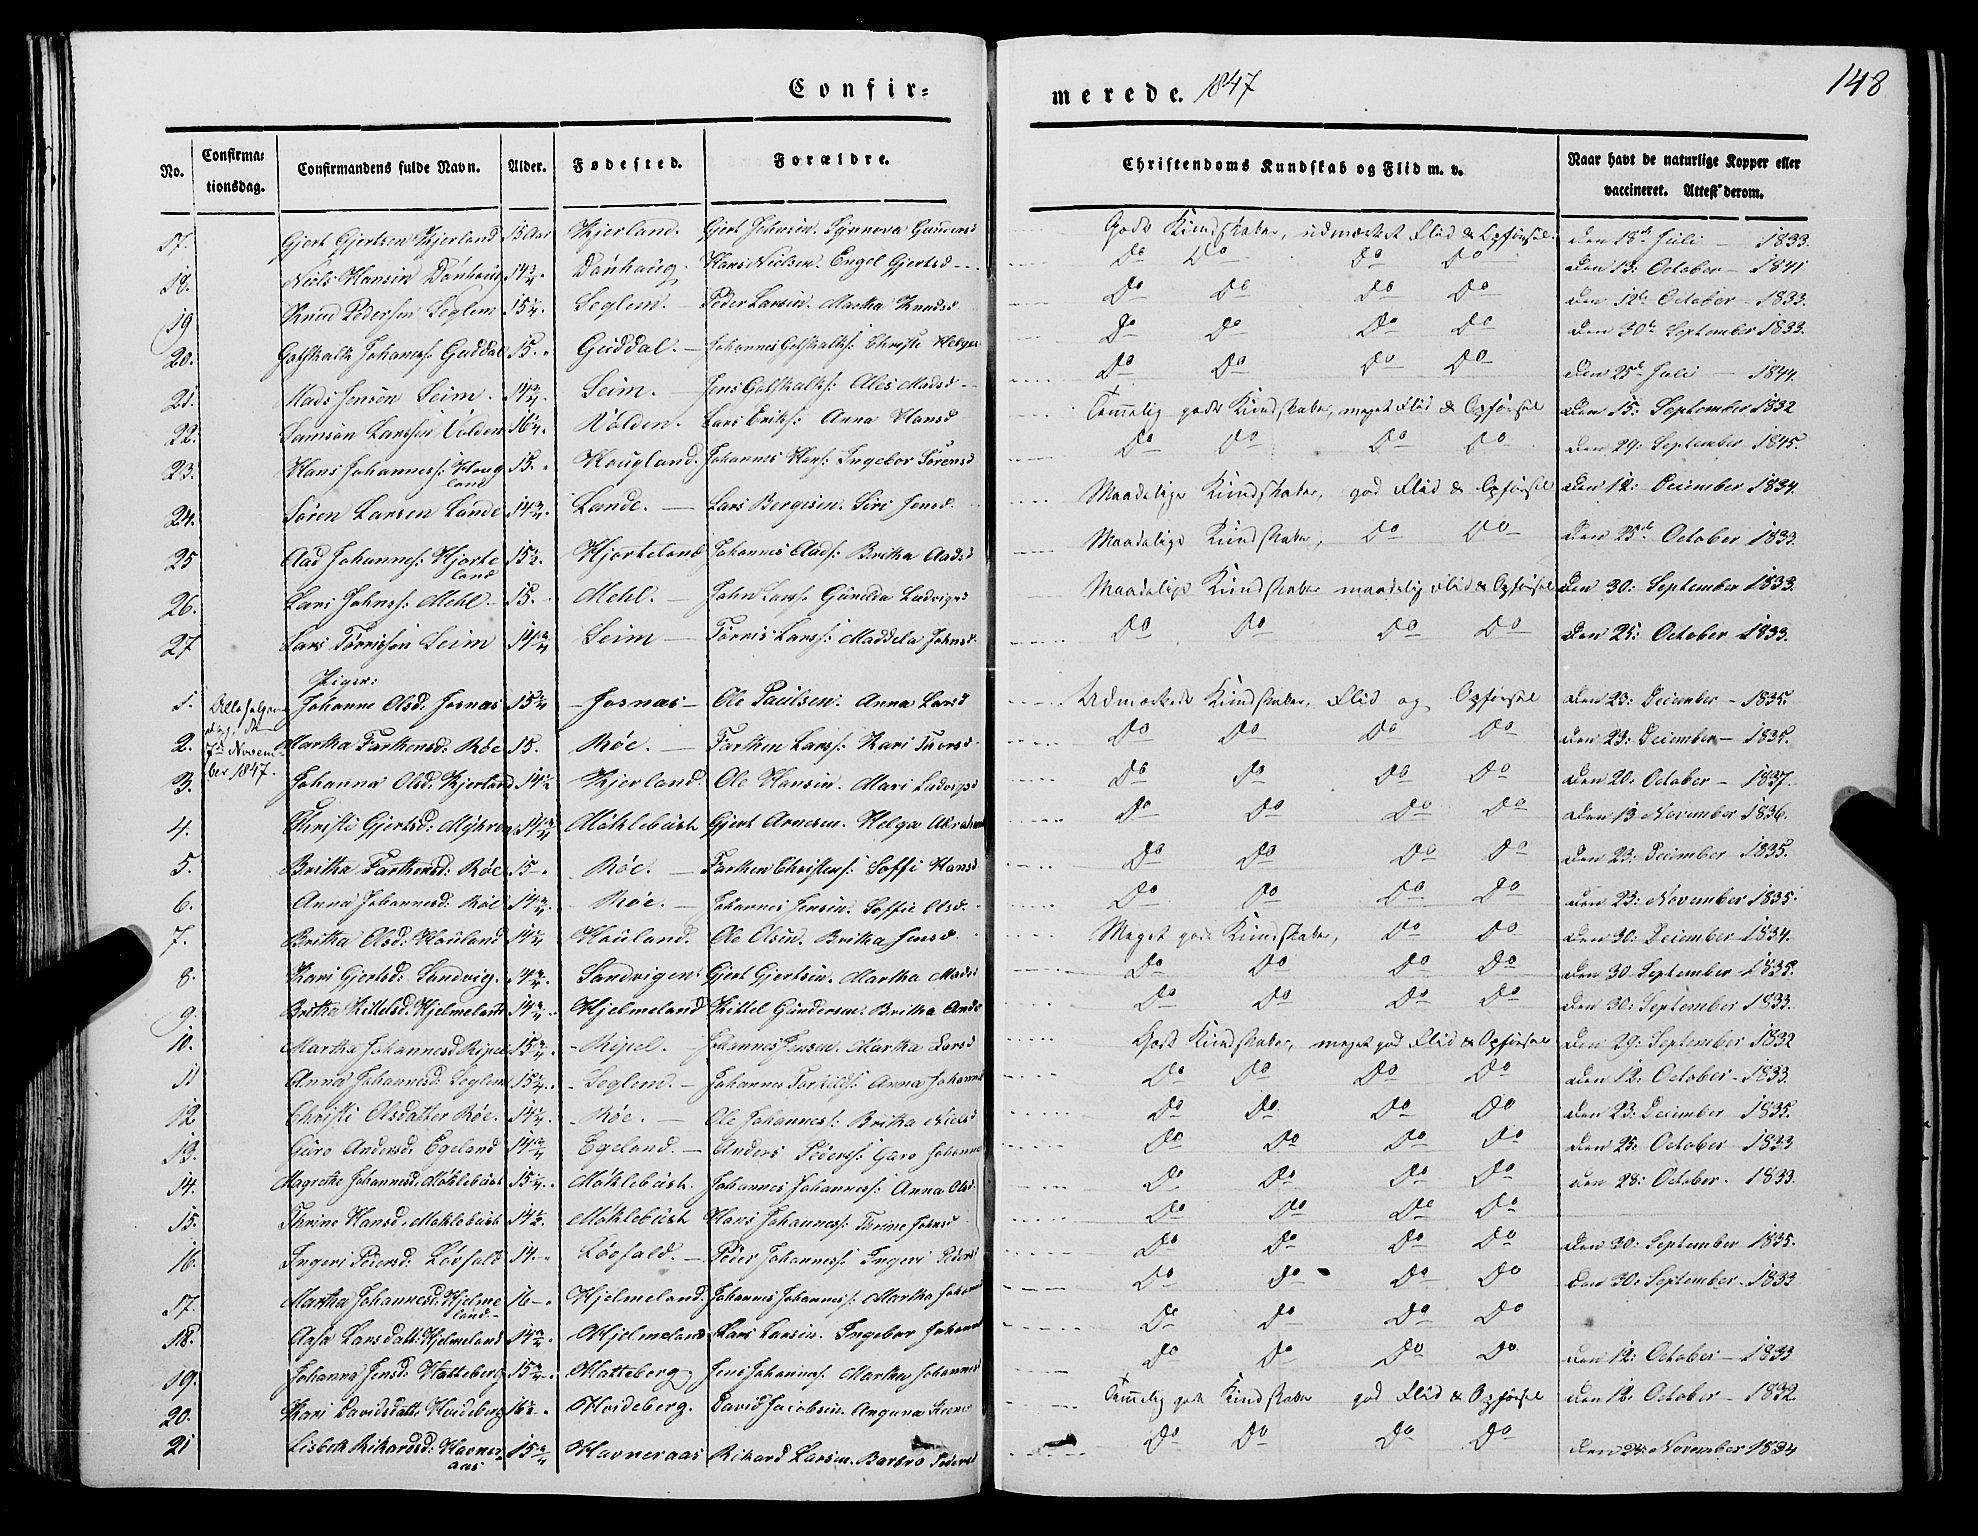 Confir=
merede. 1847
148
No.
Confirma=
tionsdag.
Confirmandens fulde Navn.
Alder.
Fødested.
Forældre.
Christendoms Kundskab og Flid m. v.
Naar havt de naturlige Kopper eller
vaccineret. Attest derom.
17. Gjert Gjertsen Kjerland 15 Aar Kjerland. Gjert Johnsen. Synnova Gundersd Gode Kundskaber, udmærket Flid & Opførsel. den 18de Juli — 1833.
18. Niels Hansen Dönhaug 14 3/4. Dönhaug. Hans Nielsen. Engel Gjertsd Do Do Do Do den 13: October — 1841
19 Knud Pedersen Seglem 15 1/4 Seglem. Peder Larsen. Martha Knudsd Do Do Do Do den 12te October — 1833.
20. Gotskalk Johanss: Guddal 15. Guddal. — Johannes Gotskalks: Christi Helges Do Do Do Do den 30te September 1833.
21. Mads Jensen Seim. 14 3/4. Seim. — Jens Gotskalks: Ales Madsd Do Do Do Do den 25de Juli — 1844.
22. Samson Larssen Volden 16 1/4. Volden. Lars Eriks: Anna Hansd Temmelig gode Kundskaber, meget Flid & Opførsel den 15. September 1832
23. Hans Johanness: Houg
land 15. Hougland. Johannes Hans: Ingebor Sørensd Do Do Do Do den 29: September 1845.
24. Sören Larsen Lande 14 3/4. Lande. — Lars Bergesen. Siri Jensd. Maadelige Kundskaber, god Flid & Opførsel den 12: December 1834.
25 Aad Johannes: Hjorte
land 15 1/2. Hjorteland Johannes Aads: Britha Aadsd Maadelige Kundskaber, Do Do den 25de October 1833.
26. Lars Johns: Mehl — 15. Mehl. — John Lars: Gunilda Ludvigsd Maadelige Kundskaber maadelig Flid & Opførsel den 30: September 1833.
27 Lars Torrisson Seim 14 3/4 Seim — Torris Lars: Maddela Johnsd. Do Do Do Do den 25: October 1833.
Piger:
1. Allehelgen
dag, d.
7de Novem
ber 1847. Johanne Olsd. Fosnas 15 1/4 Fosnas Ole Paulsen. Anna Larsd Udmærkede Kundskaber, Flid og Opførsel den 23: December — 1835.
2. Martha Farthensd: Röe 15. Röe. — Farthen Lars: Kari Thorsd Do Do Do Do den 23: December — 1835.
3. Johanna Olsd. Kjerland 14 1/2 Kjerland. Ole Hansen. Mari Ludvigsd Do Do Do Do den 20: October — 1837.
4. Christi Gjertsd: Myhren 14 3/4 Möhlebüst Gjert Arnesen. Helga Do Do Do Do den 13 November 1836.
5. Britha Farthensd: Röe 15 Röe. — Farthen Christens: Soffi Hansd Do Do Do Do den 23: December 1835.
6. Anna Johannesd: Röe 14 3/4. Röe. — Johannes Jensen. Soffie Olsd. Do Do Do Do den 23: November 1835.
7. Britha Olsd: Houland 14 1/4 Houland. Ole Olsen. Britha Jensd. Meget gode Kundskaber, Do Do den 30: December 1834.
8. Kari Gjertsd: Sandvig. 14 3/4. Sandvigen: Gjert Gjertsen. Martha Madsd Do Do Do Do den 30 September 1835.
9. Britha Kittelsd: Hjelmeland 14 3/4. Hjelmeland Kittel Gundersen: Britha Ands Do Do Do Do den 30: September 1833.
10. Martha Johannesd Ripel 15 3/4. Ripel. — Johannes Jensen. Martha Larsd Gode Kundskaber, meget god Flid & Opførsel den 29: September 1832
11 Anna Johannesd: Seglem 15 1/4. Seglem. — Johannes Torkilds: Anna Johannes Do Do Do Do den 12: October — 1833.
12 Christi Olsdatter Röe. 14 1/4. Röe. — Ole Johanness: Britha Nielsd Do Do Do Do den 23: December 1835.
13. Guro Andersd: Egeland 14 3/4 Egeland. — Anders Peders: Guro Johannes Do Do Do Do den 25: October 1833
14. Magrethe Johannesd: Möhlebüst 15 1/4. Möhlebüst. Johannes Johannes: Anna Olsd. Do Do Do Do den 28: October. 1833.
15. Thrine Hansd. Möhlebüst 14 1/2. Möhlebüst Hans Johannes: Thrine Johnsd Do Do Do Do
16. Ingeri Pedersd: Lövfald 14. Lövfald. — Peder Johanness: Ingeri Pedersd Do Do Do Do den 30: September 1835.
17. Martha Johannesd: Hjelme
land 16 Hjelmeland. Johannes Johannes: Martha Johannes Do Do Do Do den 30: September 1833
18. Larsdatt: Hjelmeland 14 3/4. Hjelmeland Lars Larsen. Ingebor Johannes Do Do Do Do
19. Johanna Jensd: Hatteberg 15 3/4. Hatteberg Jens Johannes: Martha Johannes Do Do Do Do den 12: October — 1833
20. Kari Davidsdatt: Hvideberg 16 1/2 Hvideberg. David Jacobsen. Temmelig gode Kundskaber god Flid & Opførsel den 12: October — 1832.
21 Lisbeth Rikardsd: Havner
aas 15 3/4 Havneraas Rikard Larsen. Barbro Pedersd Do Do Do Do den 28: November 1834